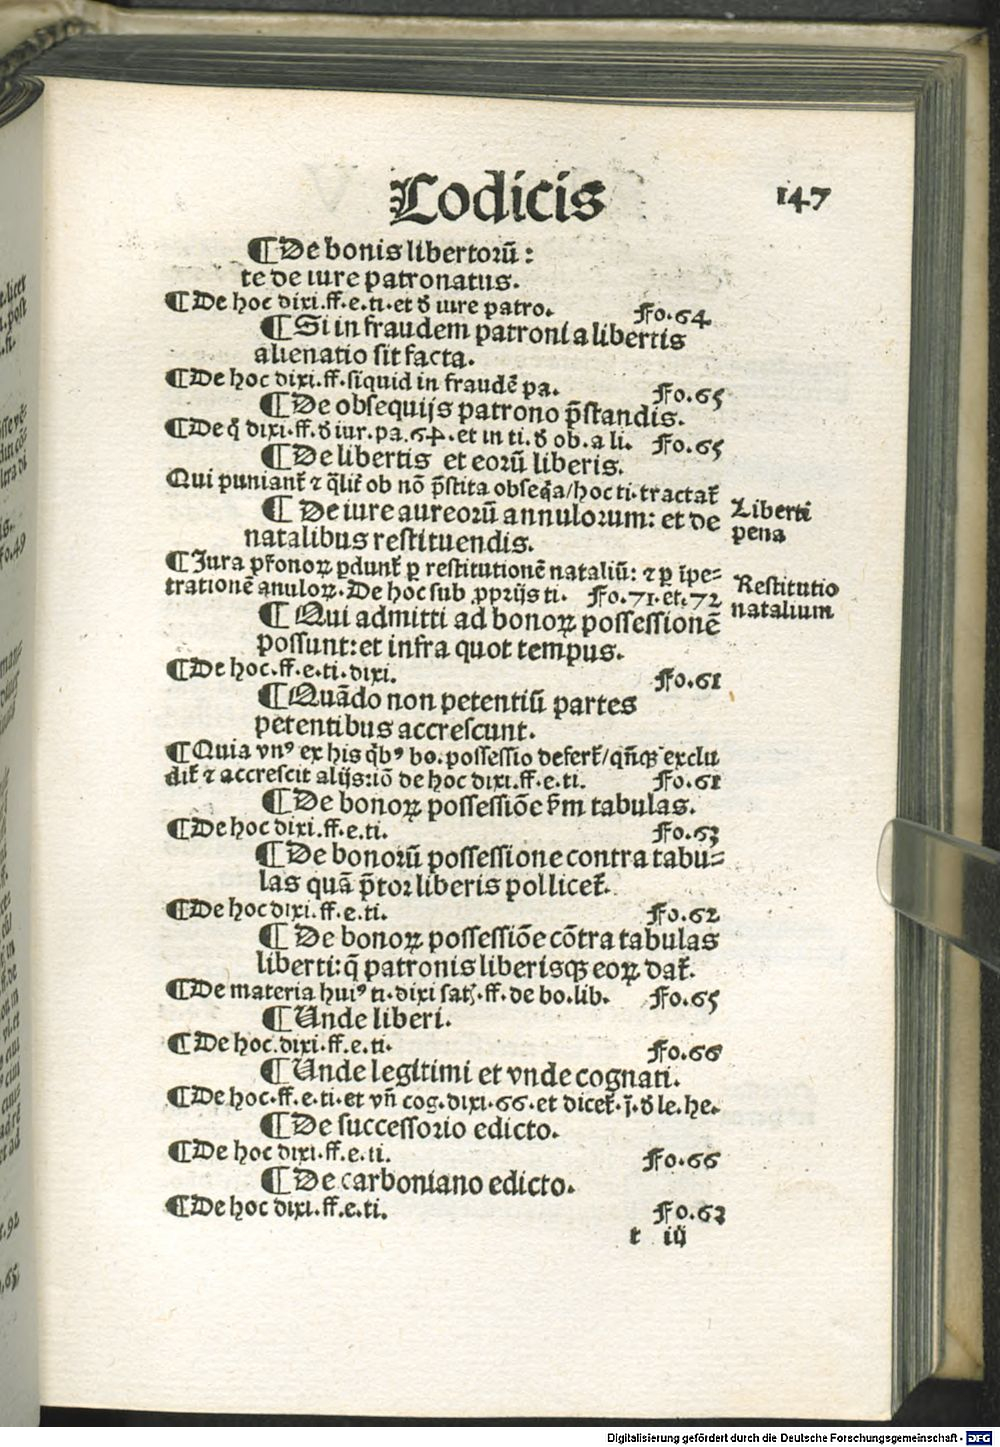 Codicis 147
¶De bonis libertorū:
te de iure patronatus.
¶De hoc dixi.ff.e.ti.et ð iure patro. Fo.64
¶Si in fraudem patroni a libertis
alienatio sit facta.
¶De hoc dixi.ff.siquid in fraudē pa. Fo.65
¶De obsequijs patrono p̄standis.
¶De q̄ dixi.ff.ð iur.pa.64.et in ti.ð ob.a li. Fo.65
¶De libertis et eorū liberis.
Qui puniant᷑ ⁊ q̄lit᷑ ob nō p̄stita obseq̄a/hoc ti.tractat᷑
Liberti
pena
¶De iure aureorū annulorum: et de
natalibus restituendis.
¶Jura pr̄onoꝝ ꝑdunt᷑ ꝑ restitutionē nataliū: ⁊ ꝑ īpe⸗
trationē anuloꝝ. De hoc sub ꝓprijs ti. Fo.71.et.72
Restitutio
natalium
¶Qui admitti ad bonoꝝ possessionē
possunt: et infra quot tempus.
¶De hoc.ff.e.ti.dixi. Fo.61
¶Quādo non petentiū partes
petentibus accrescunt.
¶Quia vnꝰ ex his q̄bꝰ bo.possessio defert᷑/qn̄qꝫ exclu
dit᷑ ⁊ accrescit alijs:iō de hoc dixi.ff.e.ti. Fo.61
¶De bonoꝝ possessiōe s̄m tabulas.
¶De hoc dixi.ff.e.ti. Fo.63
¶De bonorū possessione contra tabu⸗
las quā p̄tor liberis pollicet᷑.
¶De hoc dixi.ff.e.ti. Fo.62
¶De bonoꝝ possessiōe cōtra tabulas
liberti:q̄ patronis liberisqꝫ eoꝝ dat᷑.
¶De materia huiꝰ ti.dixi satꝭ.ff.de bo.lib. Fo.65
¶Unde liberi.
¶De hoc.dixi.ff.e.ti. Fo.66
¶Unde legitimi et vnde cognati.
¶De hoc.ff.e.ti.et vn̄ cog.dixi.66.et dicet᷑.j.ð le.he.
¶De successorio edicto.
¶De hoc dixi.ff.e.ti. Fo.66
¶De carboniano edicto.
¶De hoc dixi.ff.e.ti. Fo.63
t iij
Digitalisierung gefördert durch die Deutsche Forschungsgemeinschaft - DFG